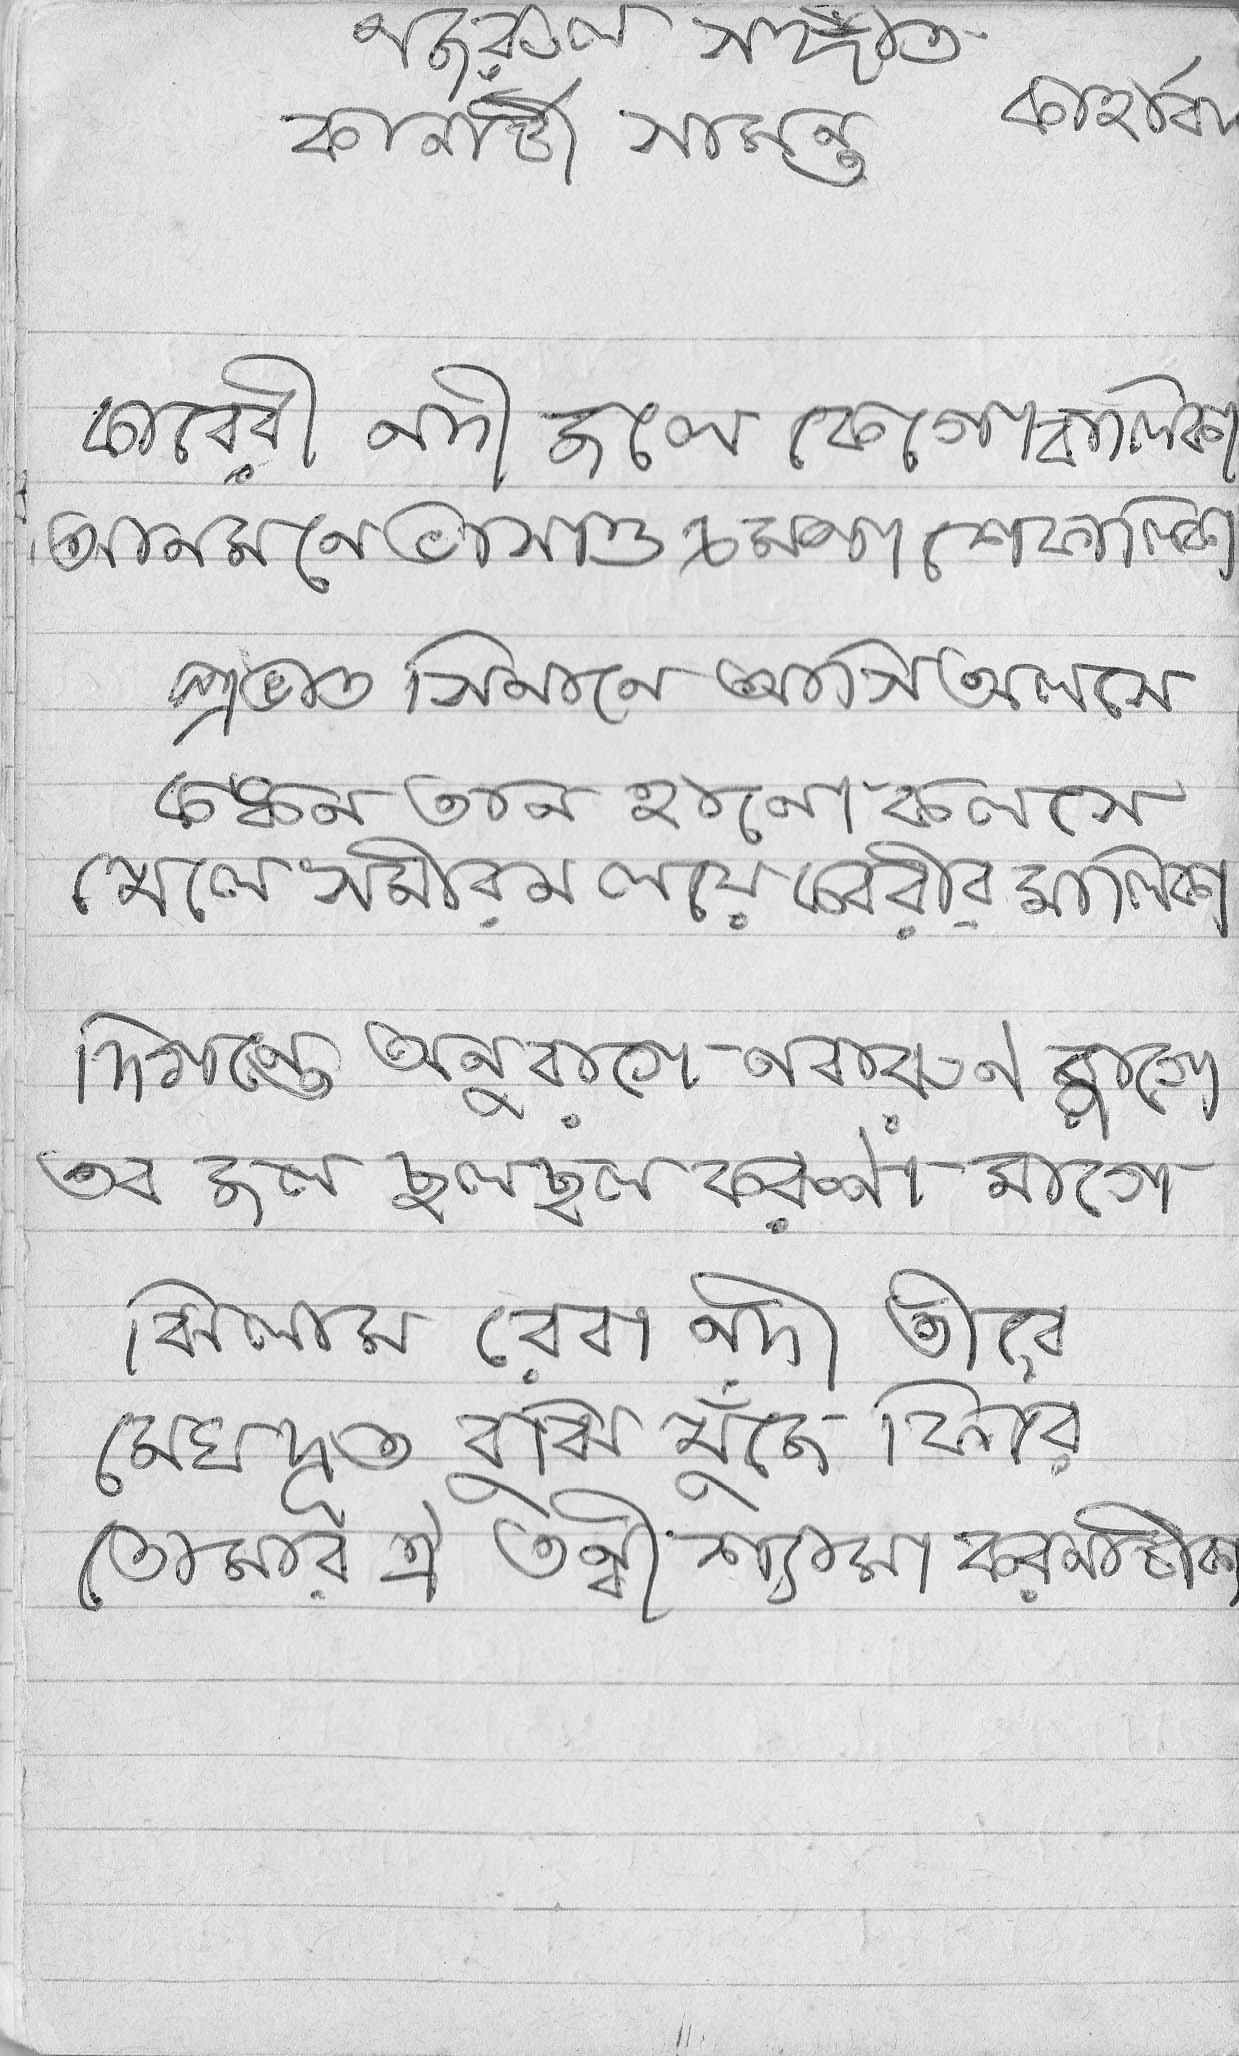 নজরুল সঙ্গীত
কাহারবা
কার্নাটী সামন্ত
কাবেরী নদী জলে কেগো বালিকা
আনমনে ভাসাও চম্পা শেফালিকা
প্রভাত সিনানে আসি অলসে
কঙ্কন তান হানো কলসে
খেলে সমীরন লয়ে কবরীর মালিকা
দিগন্তে অনুরাগে নবারুণ জাগে
তব জল ছলছল করুণা মাগে
ঝিলাম রেবা নদী তীরে
মেঘদূত বুঝি খুঁজে ফিরে
তোমারি ঐ তন্বী শ্যামা কর্নাটিকা